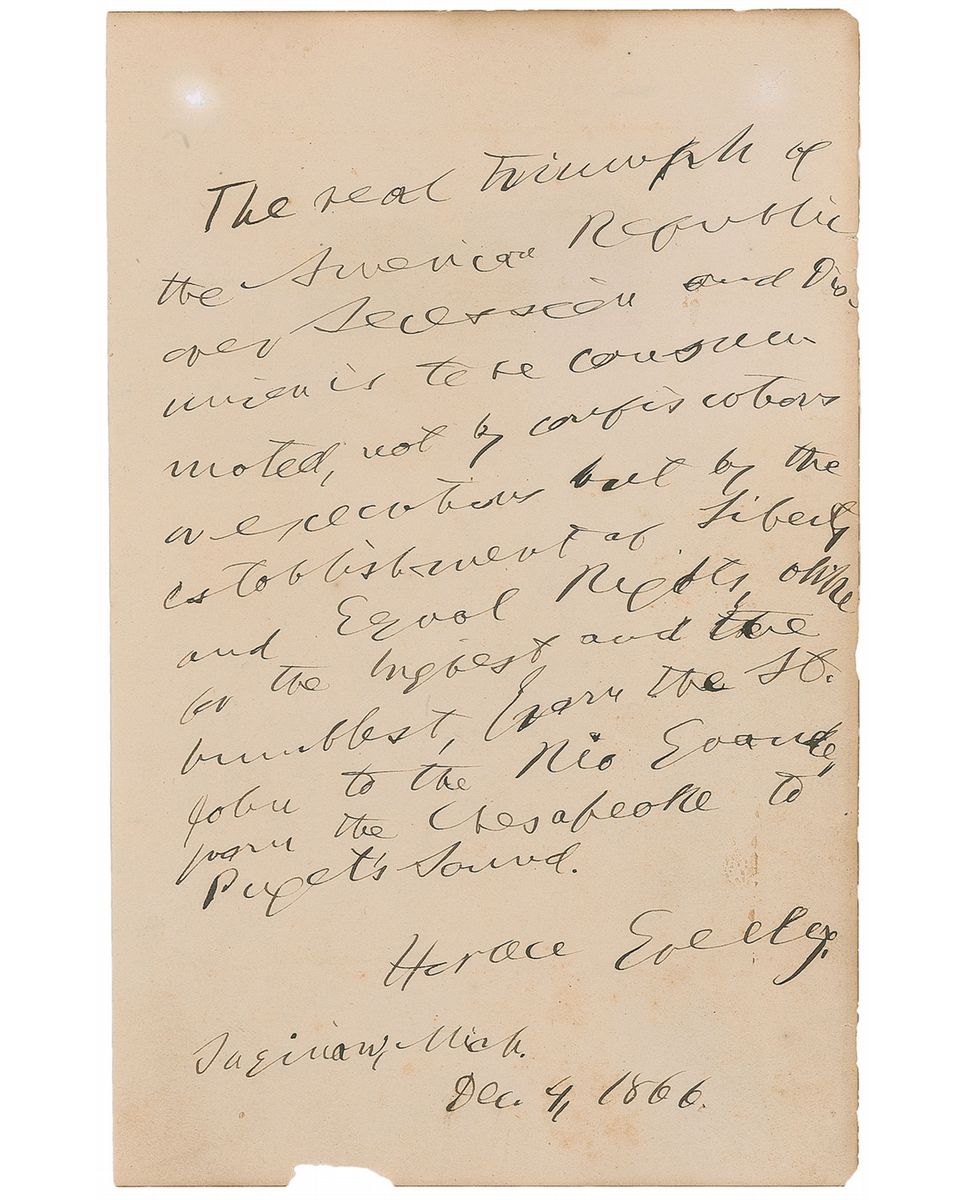 The real triumph of
the American Republic
over Secession and Dis-
union is to be consum-
mated, not by confiscations
or executions but by the
establishment of Liberty
and Equal Rights, alike
for the highest and the
humblest, from the St.
John to the Rio Grande,
from the Chesapeake to
Puget's Sound.
Horace Greeley.
Saginaw, Mich.
Dec. 4, 1866.